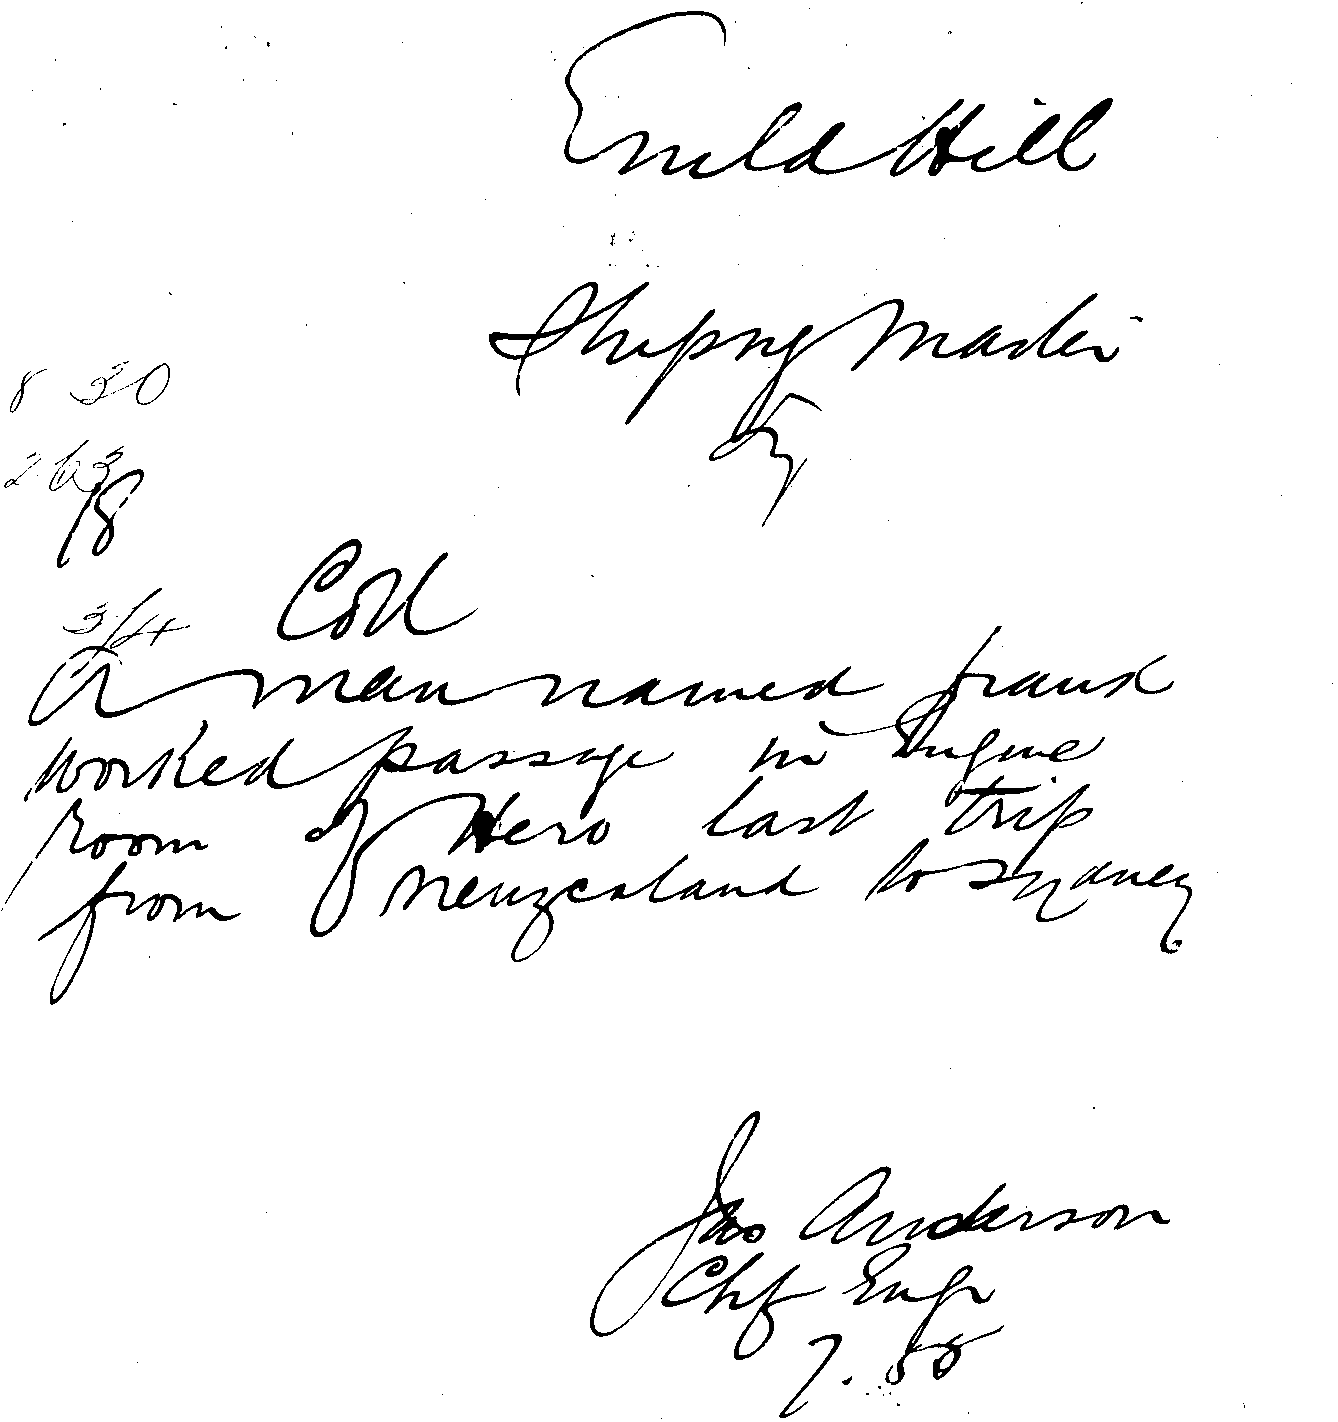 Emerald Hill
Shipping Master
8 30
263
18
3/4
A man named
worked passage in Engine
room of Hero last trip
from Newzealand to Sydney
Jas Anderson
Chf Engr
7.55